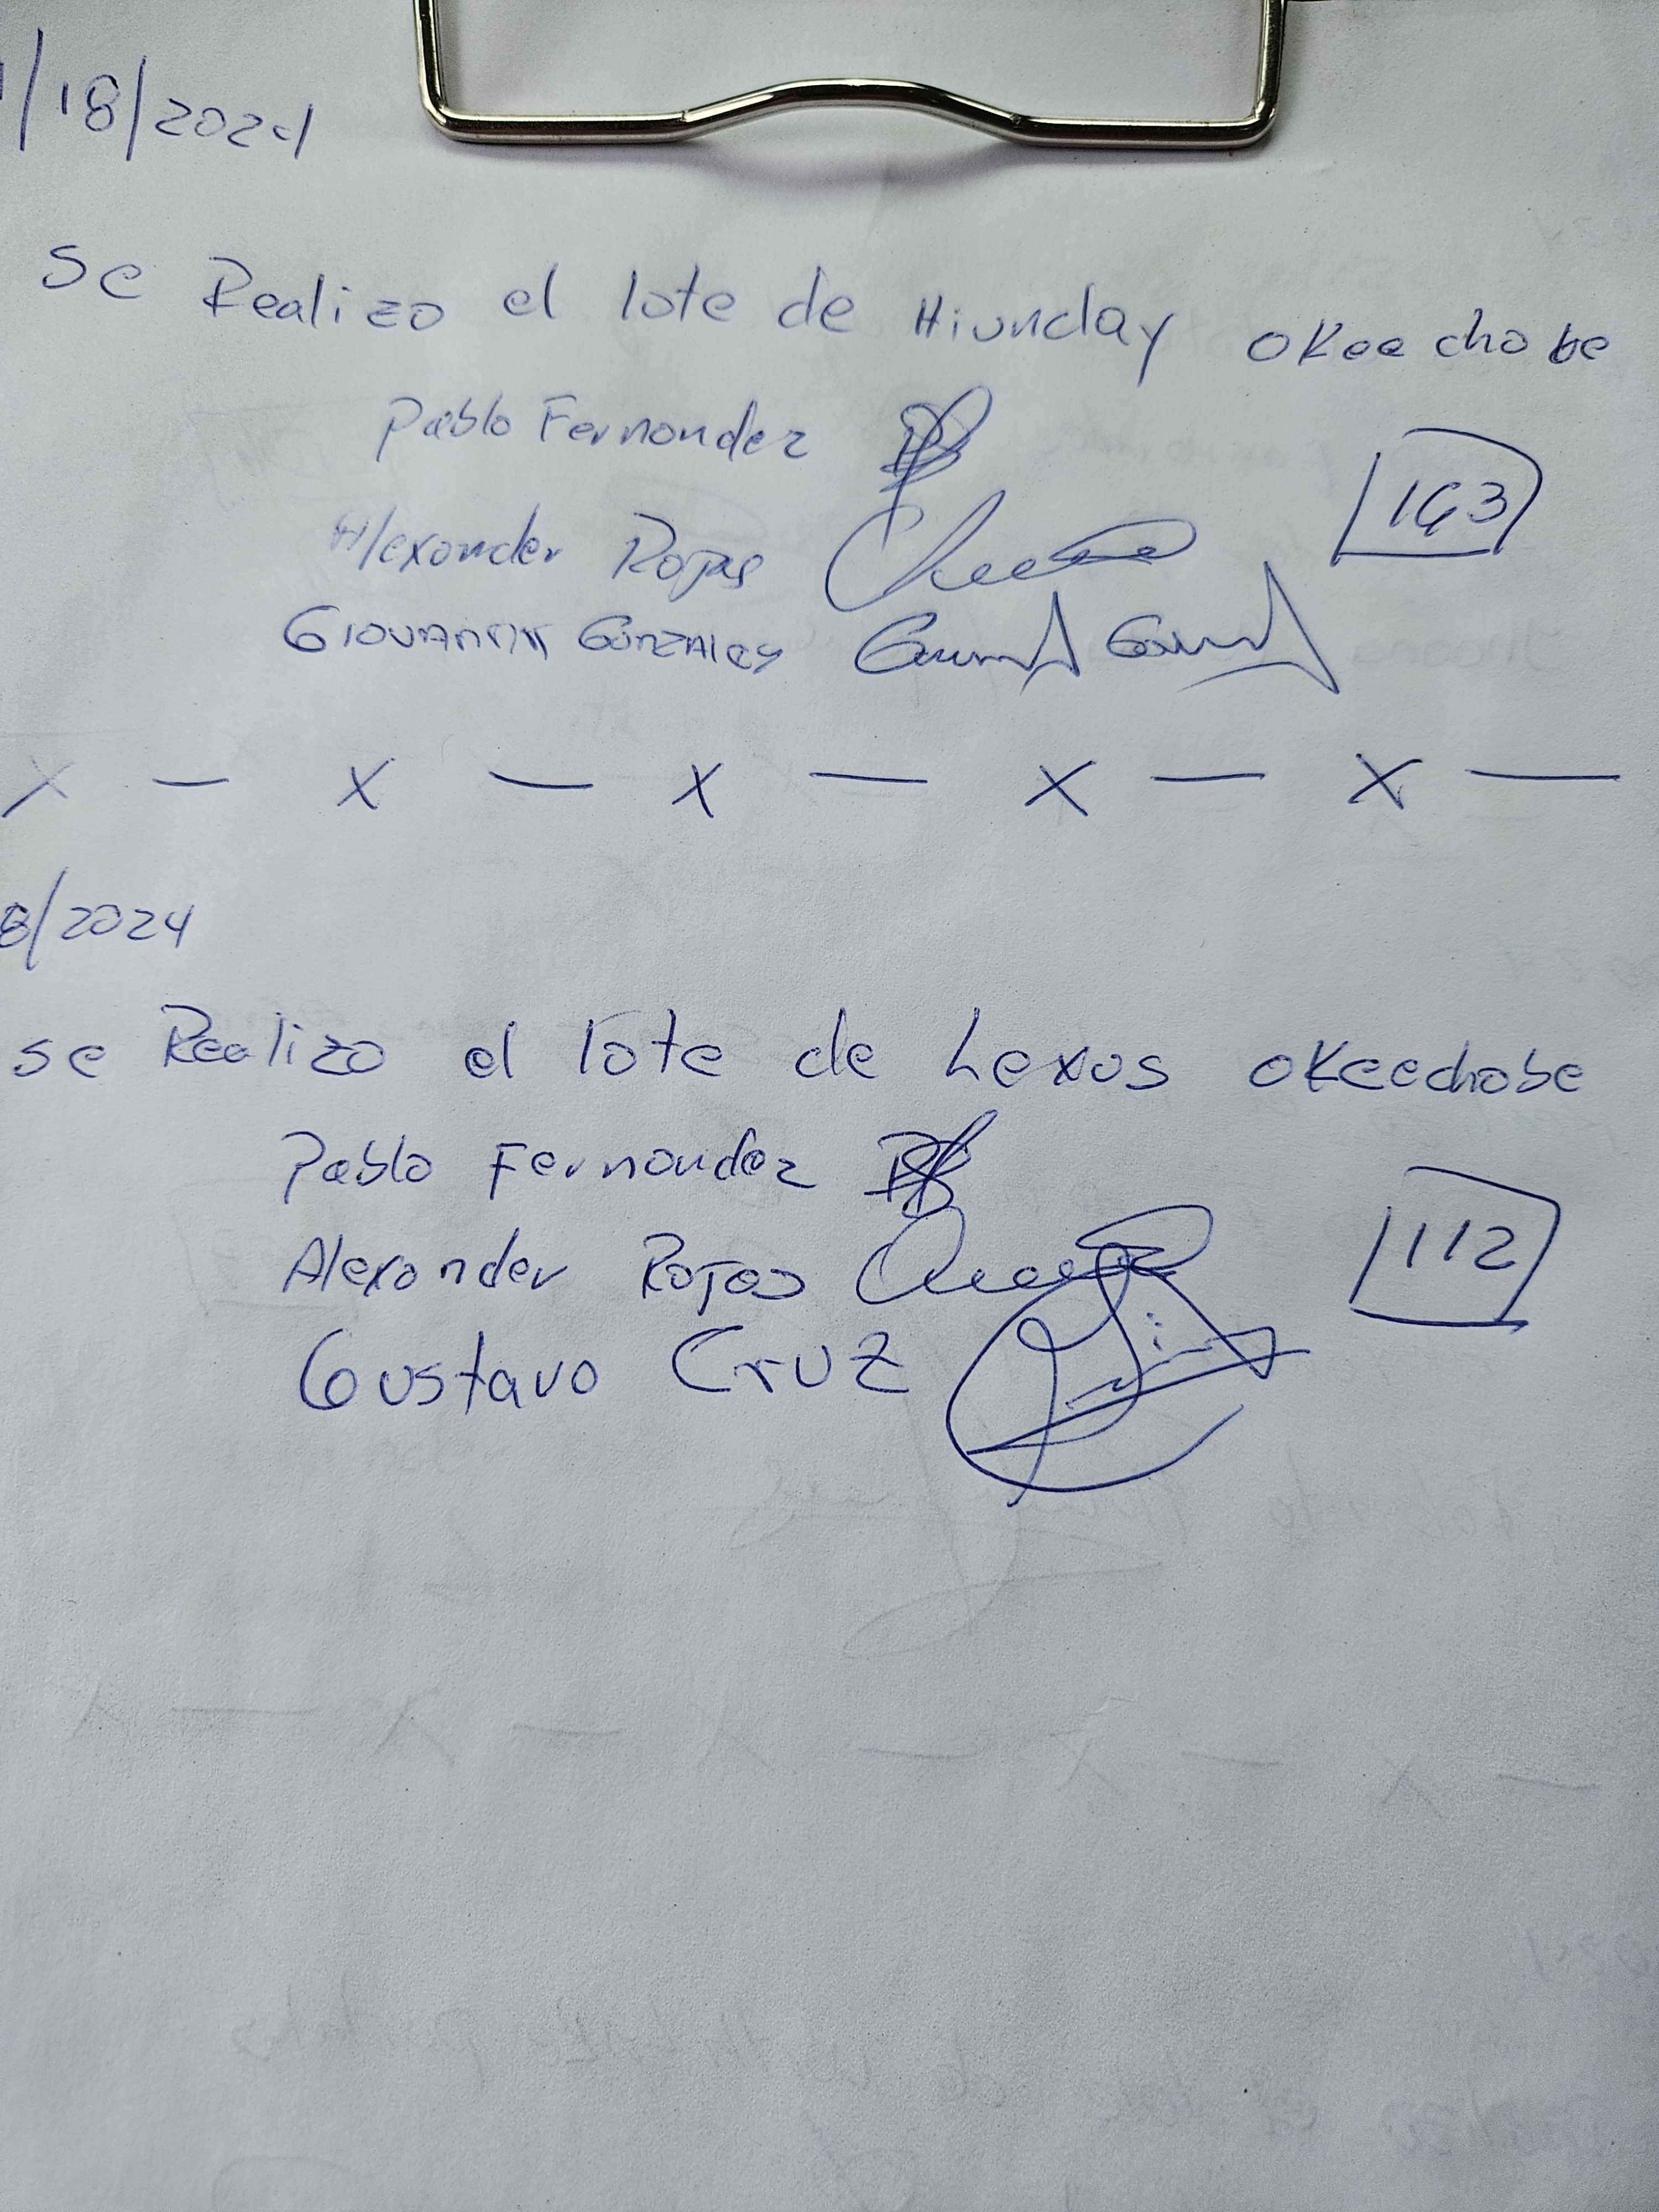 /18/2024
Se Realizo el lote de Hiunday okeechobe
Pablo Fernandez
163
Alexander Rojas
Giovanny Gonzalez
X — X — X — X — X —
8/2024
se Realizo el lote de Lexus okeechobe
Pablo Fernandez
112
Alexander Rojas
Gustavo Cruz